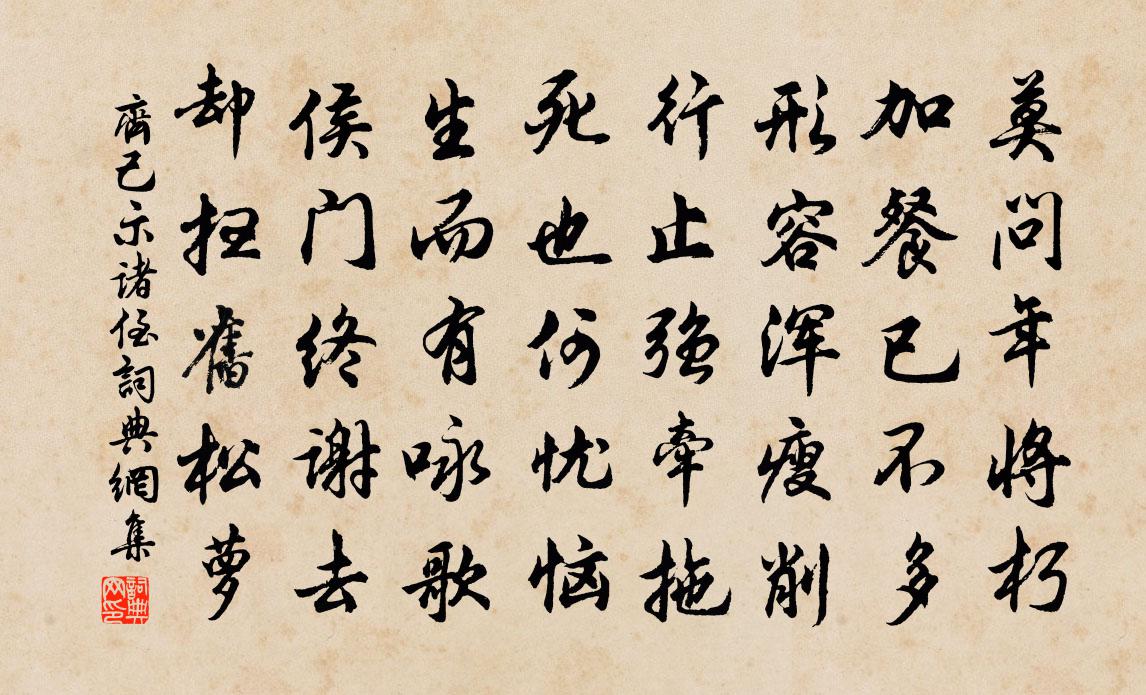 莫问年将朽
加餐已不多
形容浑瘦削
行止强牵拖
死也何忧恼
生而有咏歌
侯门终谢去
却扫舊松萝
齊己示诸侄詞典網集
詞典网印